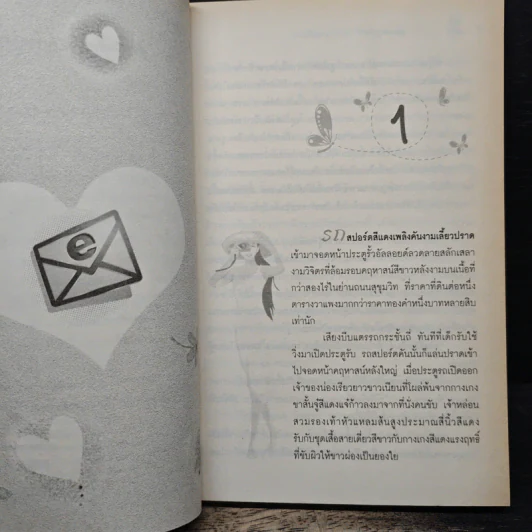 e
1
รถสปอร์ตสีแดงเพลิงคันงามเลี้ยวปราด
เข้ามาจอดหน้าประตูรั้วอัลลอยด์ลวดลายสลักเสลา
งามวิจิตรที่ล้อมรอบคฤหาสน์สีขาวหลังงามบนเนื้อที่
กว่าสองไร่ในย่านถนนสุขุมวิท ที่ราคาที่ดินต่อหนึ่ง
ตารางวาแพงมากกว่าราคาทองคำหนึ่งบาทหลายสิบ
เท่านัก
เสียงบีบแตรรถกระชั้นถี่ ทันทีที่เด็กรับใช้
วิ่งมาเปิดประตูรับ รถสปอร์ตคันนั้นก็แล่นปราดเข้า
ไปจอดหน้าคฤหาสน์หลังใหญ่ เมื่อประตูรถเปิดออก
เจ้าของน่องเรียวยาวขาวเนียนที่โผล่พ้นจากกางเกง
ขาสั้นจู๋สีแดงแจ๋ก้าวลงมาจากที่นั่งคนขับ เจ้าหล่อน
สวมรองเท้าหัวแหลมส้นสูงประมาณสี่นิ้วสีแดง
รับกับชุดเสื้อสายเดี่ยวสีขาวกับกางเกงสีแดงแรงฤทธิ์
ที่ขับผิวให้ขาวผ่องเป็นยองใย